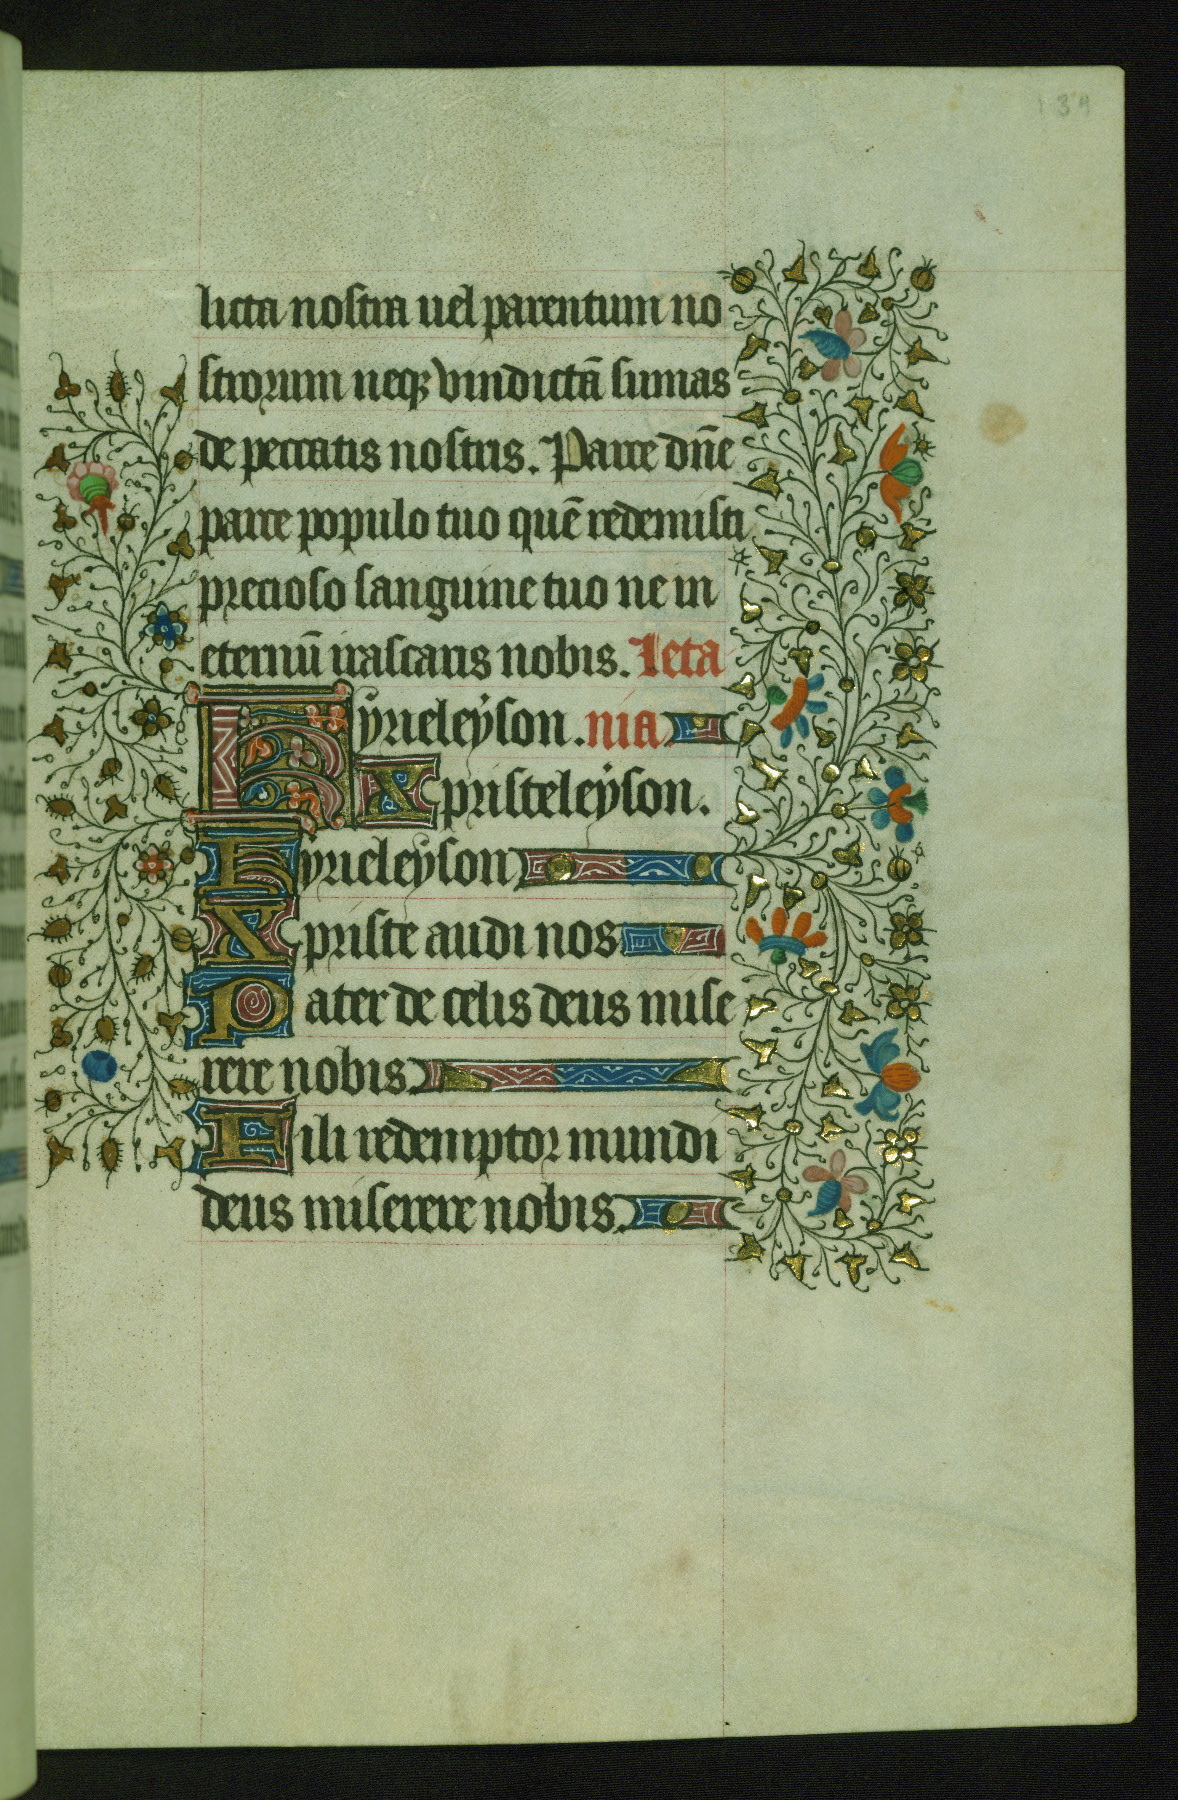 134
licta nostra uel parentum no
strorum neqꝫ vindictā sumas
de peccatis nostris. Parce dn̄e
parce populo tuo quē redemisti
precioso sanguine tuo ne in
eternū irascaris nobis. Leta
Kyrieleyson. nia
Xpristeleyson.
Kyrieleyson
Xpriste audi nos
Pater de celis deus mise
rere nobis
Fili redemptor mundi
deus miserere nobis.